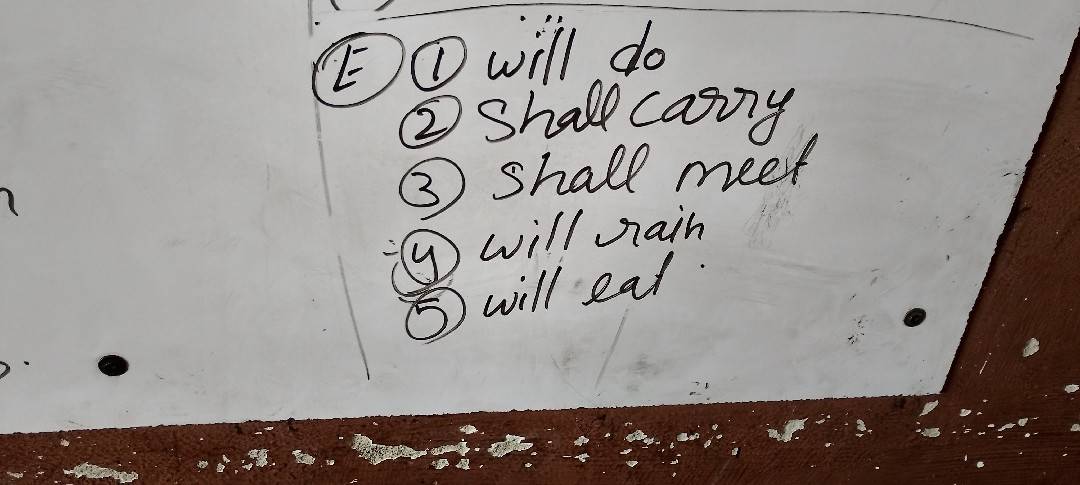 E 1 will do
2 shall carry
3 shall meet
4 will rain
5 will eat